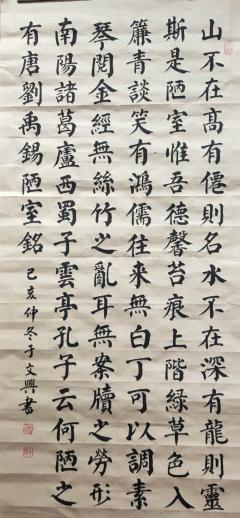 山不在高有僊則名水不在深有龍則靈
斯是陋室惟吾德馨苔痕上階綠草色入
簾青談笑有鴻儒往來無白丁可以調素
琴閱金經無絲竹之亂耳無案牘之勞形
南陽諸葛廬西蜀子雲亭孔子云何陋之
有唐劉禹錫陋室銘 己亥仲冬于文興書